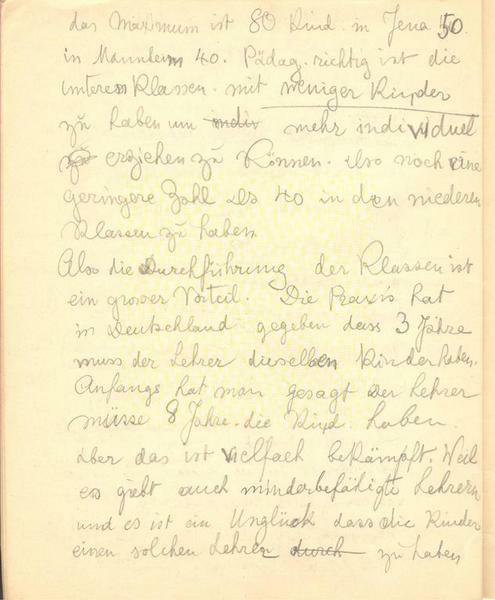 das Maximum ist 80 Kind. in Jena 50.
in Mannheim 40. Pädag. richtig ist die
unteren Klassen. mit weniger Kinder
zu haben um indiv mehr individuel
zu erziehen zu können. Also noch eine
geringere Zahl als 40 in den niederen
Klassen zu haben.
Also die Durchführung der Klassen ist
ein grosser Vorteil. Die Praxis hat
in Deutschland gegeben dass 3 Jahre
muss der Lehrer dieselben Kinder haben.
Anfangs hat man gesagt der Lehrer
müsse 8 Jahre. die Kind. haben.
Aber das ist vielfach bekämpft. Weil
es giebt auch minderbefähigte Lehrern
und es ist ein Unglück dass die Kinder
einen solchen Lehrer durch zu haben